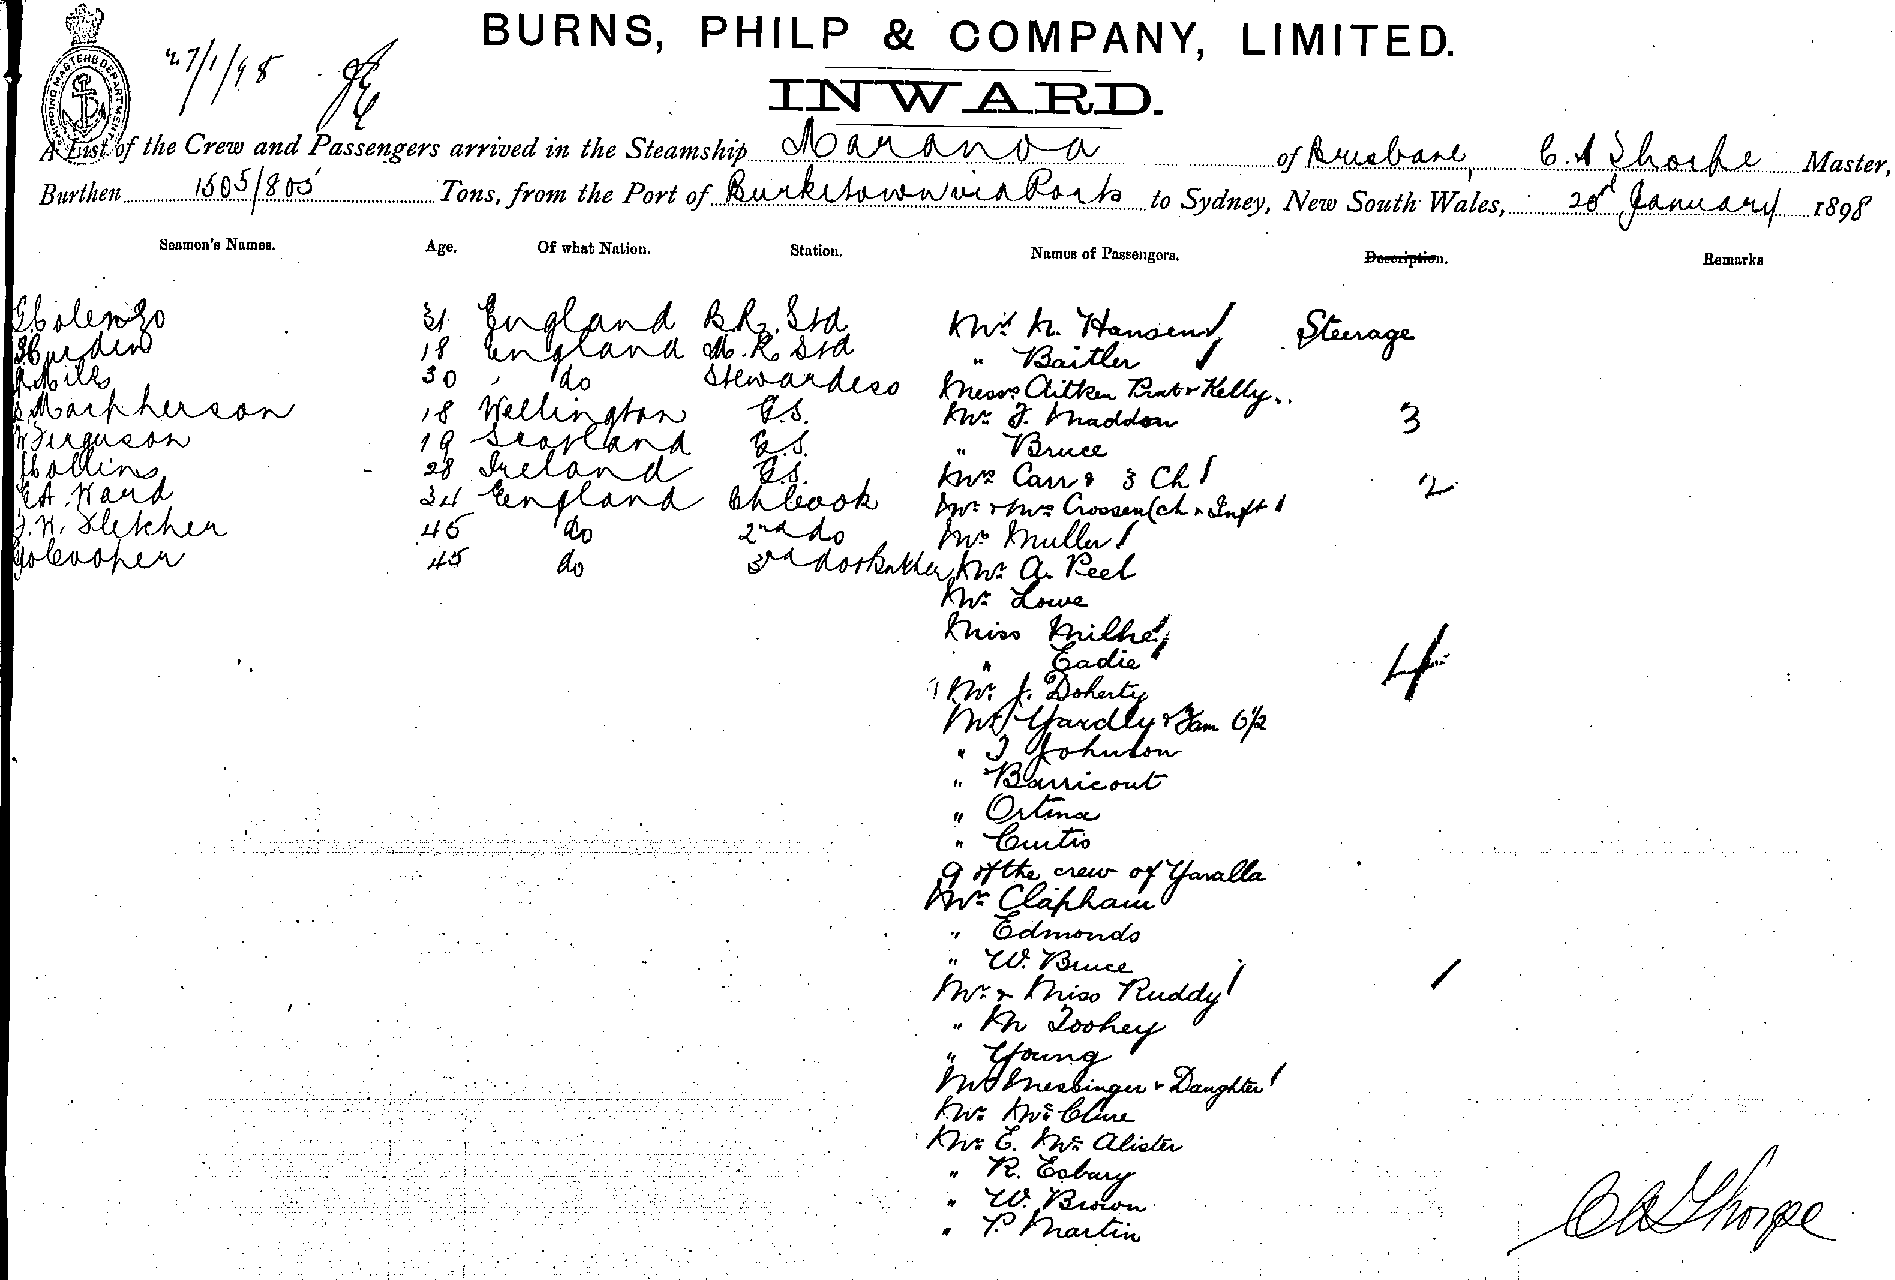 BURNS, PHILP & COMPANY, LIMITED.
27/1/98
INWARD.
A List of the Crew and Passengers arrived in the Steamship Maranoa of Brisbane, C. A Thorpe Master,
Burthen 1505/805 Tons, from the Port of Burketown via Ports to Sydney, New South Wales, January 1898
Seamen's Names. Age. Of what Nation. Station. Names of Passengers. Description. Remarks
Colenzo 31 England B.R. Std Mrs N. Hansen Steerage
18 England M. R. Std " Baitler
Mills 30 do Stewardess Messrs Aitken Pratt & Kelly
Macpherson 18 Wellington G.S. Mr. F. Maddon 3
Ferguson 19 Scotland G.S. " Bruce
Collins 28 Ireland G.S. Mrs Carr & 3 Ch
E.A. Ward 34 England Ch Cook Mr & Mrs Crossen (ch & Inft 2
J. W. Fletcher 45 do 2nd do Mrs Muller
Cooper 45 do 3rd do & Butcher Mr. A. Peel
Mr. Lowe
Miss Milne
" Eadie 4
Mr. J. Doherty
Mr Yardly & Fam 6 1/2
" J Johnson
" Barricout
" Ortina
" Curtis
9 of the crew of Yaralla
Mr. Clapham
" Edmonds
" W. Bruce
Mr. & Miss Ruddy 1
" M Toohey
" Young
Mrs Messinger & Daughter
Mr. McClure
Mr. E. McAlister
" R. Esbury
" W. Brown
" P. Martin
C A Thorpe